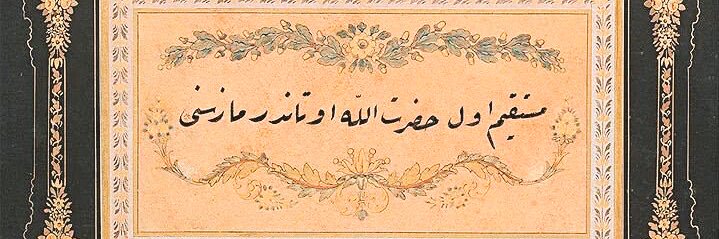 مستقيم اول حضرت الله اوتاندرمازسنى